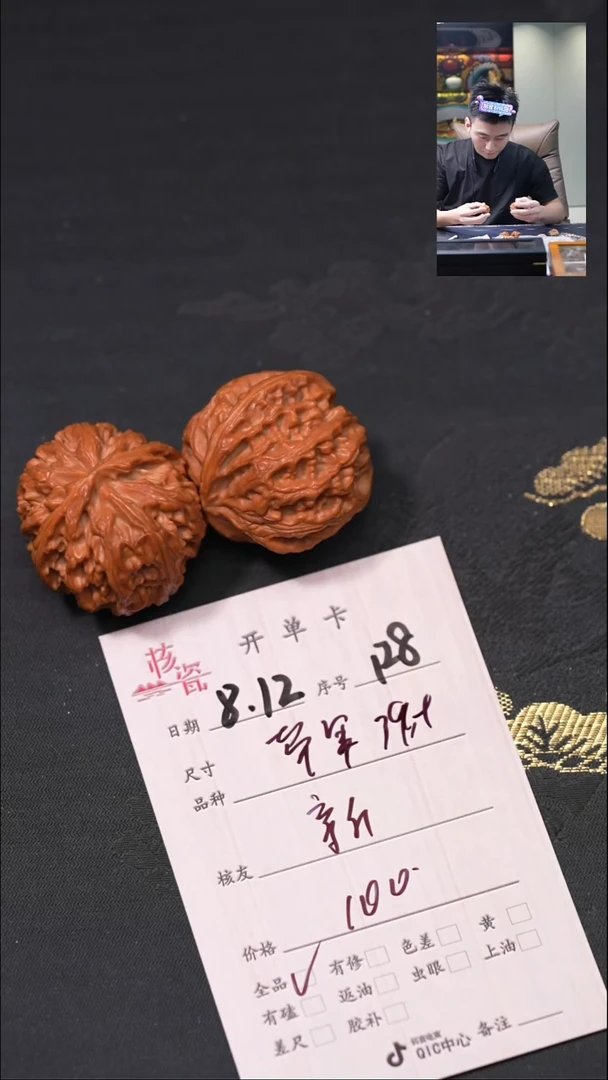 核瓷
开单卡
日期 8.12 序号 128
尺寸
品种 苹果 39+
核友 新
价格 100
全品 ✓ 有修 色差 黄
有磕 返油 虫眼 上油
差尺 胶补
抖音电商
QIC中心 备注